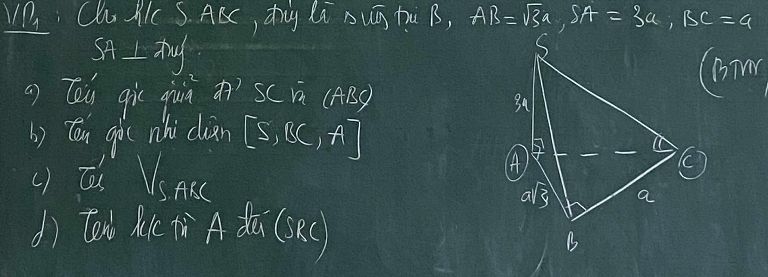 VD1: Cho h/c S.ABC, đáy là Δ vuông tại B, AB=√3a, SA=3a, BC=a
SA ⊥ đáy.
(BTVN
a) Tính góc giữa đt SC và (ABC)
b) Tính góc nhị diện [S, BC, A]
c) Tính V_{S.ABC}
d) Tính k/c từ A đến (SBC)
S
3a
A
C
a√3
a
B